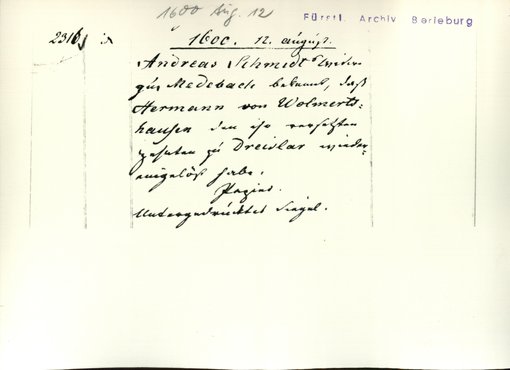 1600 Aug. 12
Fürstl. Archiv Berleburg
2316
1600. 12. august.
Andreas Schmidt
zu Medebach bekennt, daß
Hermann von Wolmerts-
hausen den ihr versetzten
zehnten zu Dreislar wieder-
eingelöst habe.
Papier.
Untergedrücktes Siegel.